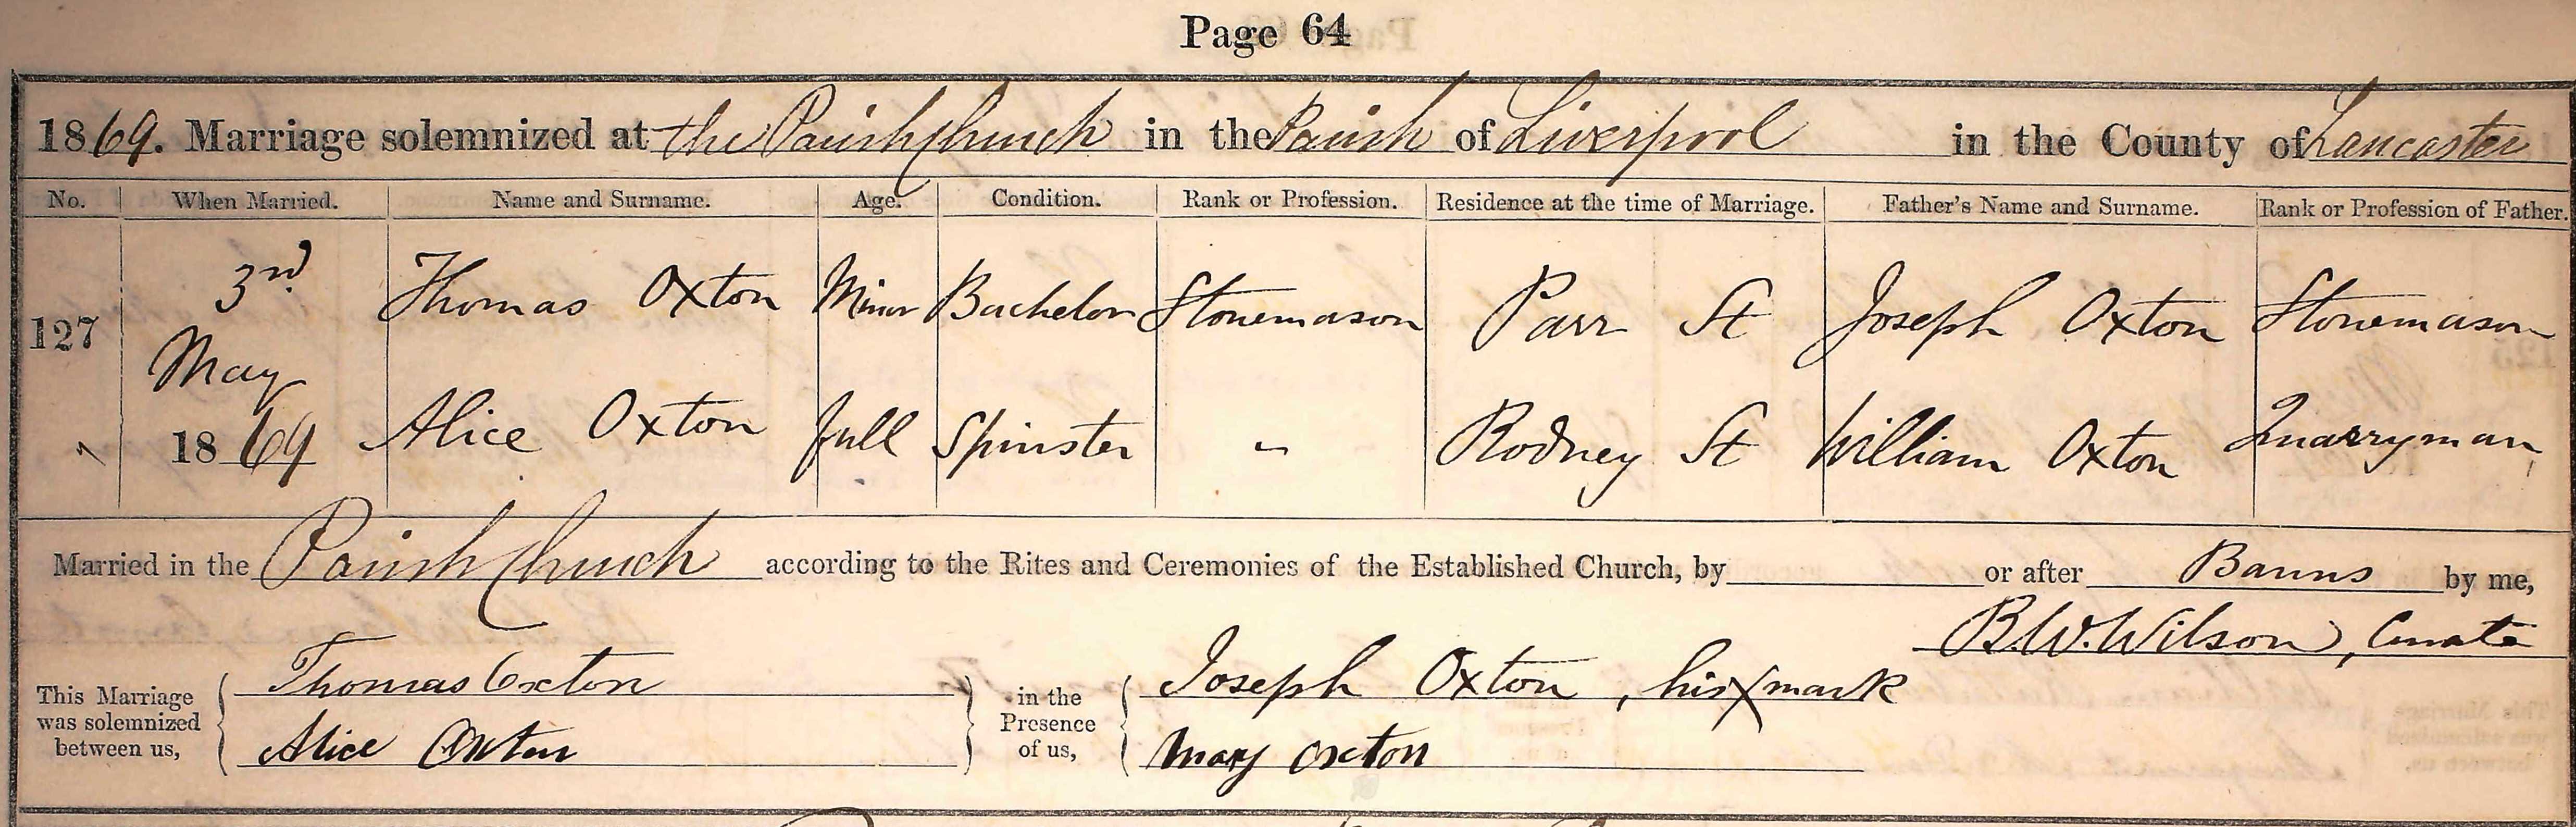 Page 64
1869. Marriage solemnized at the Parish Church in the Parish of Liverpool in the County of Lancaster
No. When Married. Name and Surname. Age. Condition. Rank or Profession. Residence at the time of Marriage. Father's Name and Surname. Rank or Profession of Father.
127 3rd May 1869 Thomas Oxton Minor Bachelor Stonemason Parr St Joseph Oxton Stonemason
Alice Oxton full Spinster - Rodney St William Oxton Quarryman
Married in the Parish Church according to the Rites and Ceremonies of the Established Church, by or after Banns by me,
B.W. Wilson, Curate
This Marriage was solemnized between us, Thomas Oxton in the Presence of us, Joseph Oxton, his X mark
Alice Oxton Mary Oxton